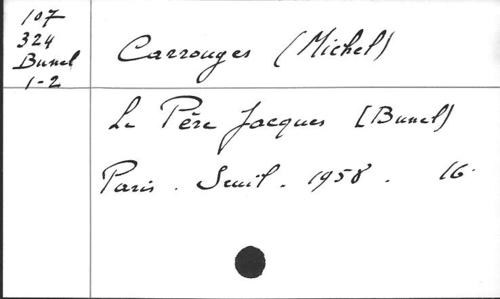 107
324
Bunel
1-2
Carrouges (Michel)
Le Père Jacques [Bunel)
Paris. Seuil. 1958. 16.